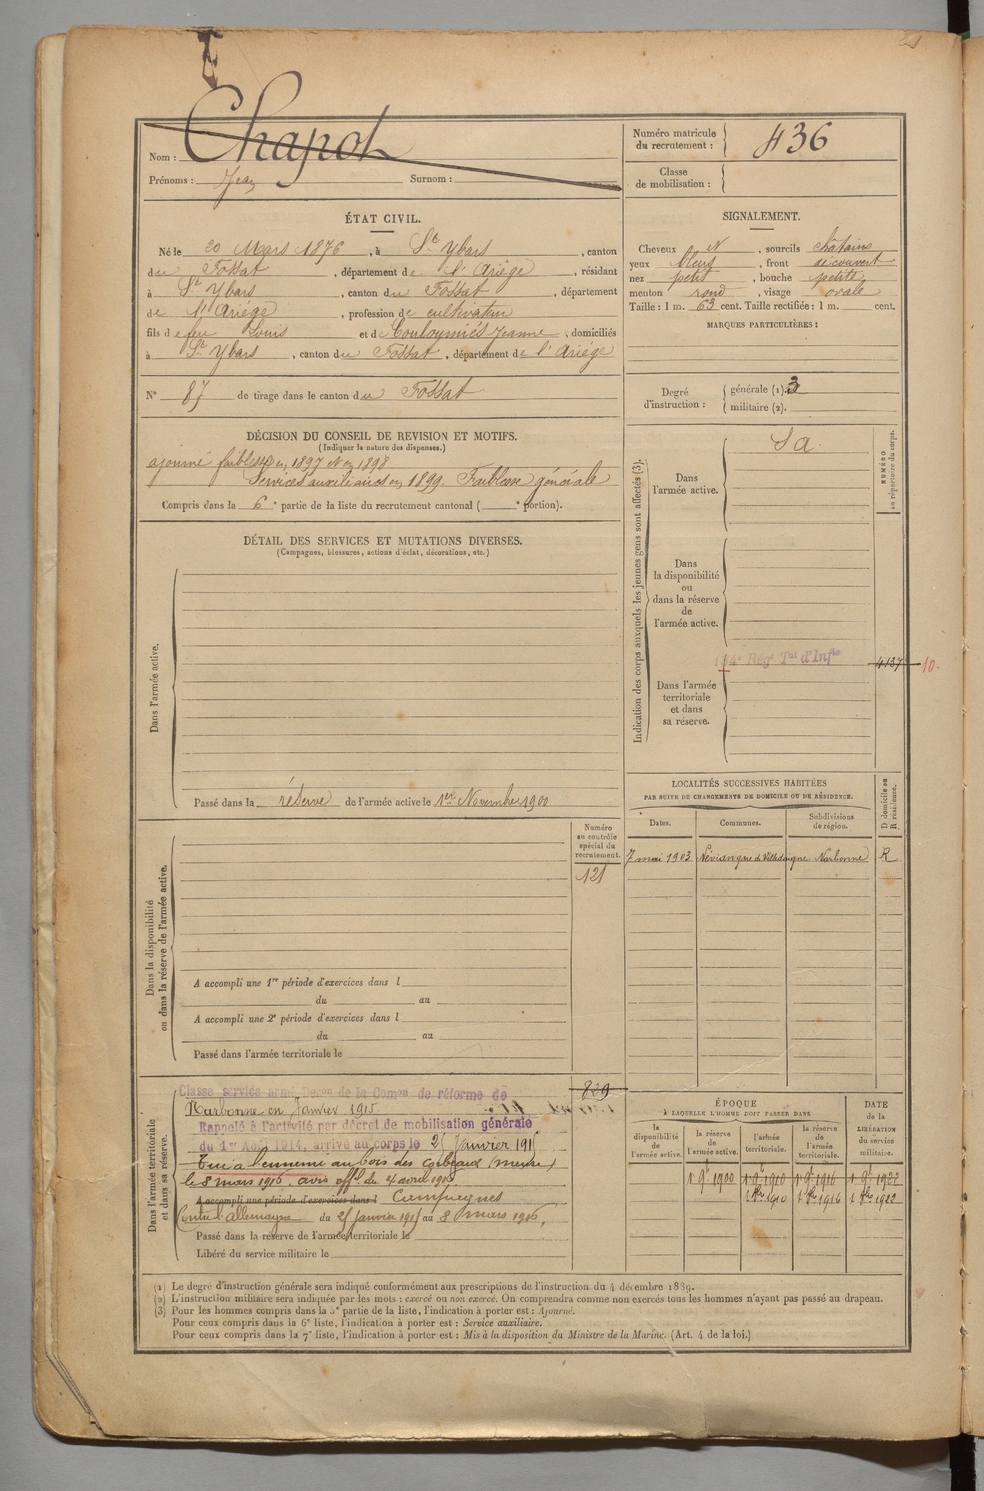 Nom : Chapot
Prénoms : Jean Surnom :
Numéro matricule du recrutement : 436
Classe de mobilisation :
ÉTAT CIVIL.
Né le 20 Mars 1876, à St Ybars, canton
du Fossat, département de l'Ariège, résidant
à St Ybars, canton du Fossat, département
de l'Ariège, profession de cultivateur
fils de feu Louis et de Couloumiès Jeanne, domiciliés
à St Ybars, canton du Fossat, département de l'Ariège
N° 87 de tirage dans le canton du Fossat
SIGNALEMENT.
Cheveux N, sourcils châtains
yeux bleus, front découvert
nez petit, bouche petite
menton rond, visage ovale
Taille : 1 m. 63 cent. Taille rectifiée : 1 m. cent.
MARQUES PARTICULIÈRES :
Degré d'instruction :
générale (1). 3
militaire (2).
DÉCISION DU CONSEIL DE REVISION ET MOTIFS.
(Indiquer la nature des dispenses.)
ajourné faiblesse en 1897 et en 1898
Services auxiliaires en 1899. Faiblesse générale
Compris dans la 6e partie de la liste du recrutement cantonal ( e portion).
DÉTAIL DES SERVICES ET MUTATIONS DIVERSES.
(Campagnes, blessures, actions d'éclat, décorations, etc.)
Dans l'armée active.
Passé dans la réserve de l'armée active le 1er Novembre 1900
Indication des corps auxquels les jeunes gens sont affectés (3).
NUMÉRO au répertoire du corps.
Dans l'armée active.
S a.
Dans la disponibilité ou dans la réserve de l'armée active.
Dans l'armée territoriale et dans sa réserve.
Régt Tal d'Infie
4137 10.
LOCALITÉS SUCCESSIVES HABITÉES
PAR SUITE DE CHANGEMENTS DE DOMICILE OU DE RÉSIDENCE.
Dates. Communes. Subdivisions de région. D domicile ou R résidence.
7 mai 1903 Névian gare de Villedaigne Narbonne R
Dans la disponibilité ou dans la réserve de l'armée active.
Numéro au contrôle spécial du recrutement.
121
A accompli une 1re période d'exercices dans l
du au
A accompli une 2e période d'exercices dans l
du au
Passé dans l'armée territoriale le
Dans l'armée territoriale et dans sa réserve.
829
Classe service armé Décon de la Comon de réforme de
Narbonne en Janvier 1915
Rappelé à l'activité par décret de mobilisation générale
du 1er Août 1914, arrivé au corps le 25 Janvier 1915
Tué à l'ennemi au bois des Corbeaux (meuse)
le 8 mars 1916, avis offel du 4 avril 1916
A accompli une période d'exercices dans l Campagnes
Contre l'allemagne du 25 Janvier 1915 au 8 mars 1916,
Passé dans la réserve de l'armée territoriale le
Libéré du service militaire le
ÉPOQUE
À LAQUELLE L'HOMME DOIT PASSER DANS
DATE de la LIBÉRATION du service militaire.
la disponibilité de l'armée active. la réserve de l'armée active. l'armée territoriale. la réserve de l'armée territoriale.
1 9e 1900 1 9e 1910 1 9e 1916 1 9e 1922
1 8bre 1910 1 8bre 1916 1 8bre 1922
(1) Le degré d'instruction générale sera indiqué conformément aux prescriptions de l'instruction du 4 décembre 1889.
(2) L'instruction militaire sera indiquée par les mots : exercé ou non exercé. On comprendra comme non exercés tous les hommes n'ayant pas passé au drapeau.
(3) Pour les hommes compris dans la 5e partie de la liste, l'indication à porter est : Ajourné.
Pour ceux compris dans la 6e liste, l'indication à porter est : Service auxiliaire.
Pour ceux compris dans la 7e liste, l'indication à porter est : Mis à la disposition du Ministre de la Marine. (Art. 4 de la loi.)